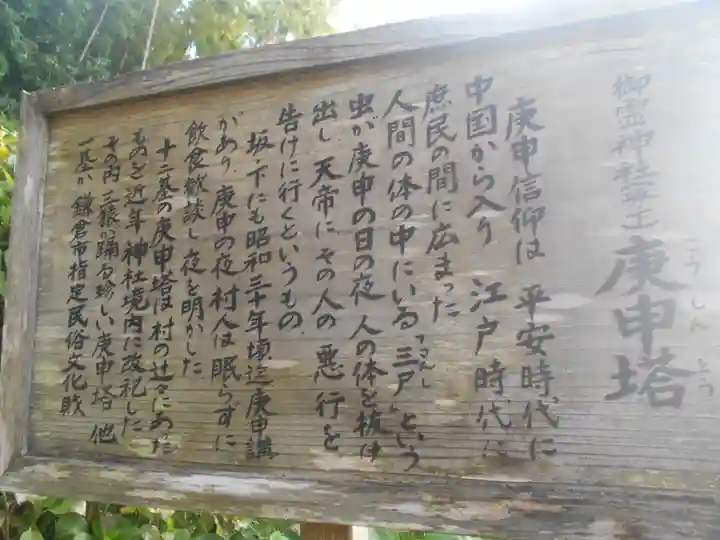 御霊神社
庚申塔
こうしんとう
庚申信仰は 平安時代に
中国から入り 江戸時代に
庶民の間に広まった
人間の体の中にいる「三尸」という
さんし
虫が庚申の日の夜 人の体を抜け
出し 天帝に その人の 悪行を
告げに行くというもの。
坂ノ下にも昭和三十年頃迄庚申講
があり、庚申の夜 村人は眠らずに
飲食歓談し 夜を明かした
十二基の庚申塔は村の辻々にあった
ものを近年 神社境内に改祀した
その内 三猿の踊る珍しい庚申塔 他
一基が 鎌倉市指定民俗文化財